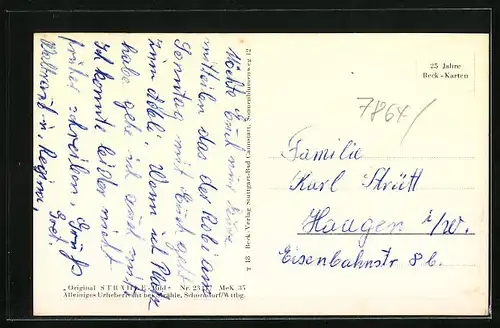 Möchte Euch nur kurz
mitteilen das der Robi am
Sonntag mit Euch geht
zum Ädeli. Wenn ich Platz
habe gehe ich auch mit
Ich konnte leider nicht
früher schreiben. Gruß
Gret.
Waltraud u. Regine,
T 18 Beck-Verlag Stuttgart-Bad Cannstatt, Sonnenblumenweg 12
25 Jahre
Beck-Karten
7864/
Familie
Karl Strütt
Haagen i/W.
Eisenbahnstr 8 b.
„Original STRÄHLE-Bild“ Nr. MeK 35
Alleiniges Urheberrecht bei Strähle, Schorndorf/Wttbg.